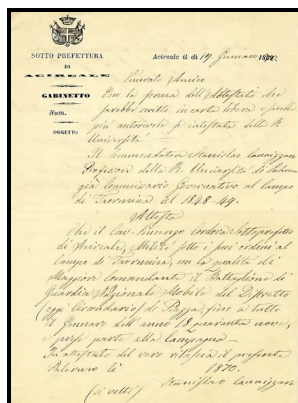 SOTTO PREFETTURA
DI
ACIREALE
GABINETTO
Num.
OGGETTO
Acireale il dì 14 Gennaro 1870.
Amico
la forma dell'Attestato che
in carta libera
più autorevole intestata della R.
Università
Il Commendatore Stanislao Cannizzaro
Professore della R. Università di Palermo
già Commissario Governativo al campo
di Taormina al 1848-49.
Attesta
Che il Cav. Sottoprefetto
di Acireale, sotto i suoi ordini al
campo di Taormina, con la qualità di
Maggiore Comandante il Battaglione di
Guardia Nazionale Mobile del Distretto
(oggi Circondario) di Piazza, fino a tutto
il Gennaro dell'anno 18 quaranta nove,
e prese parte alla Campagna
In attestato del vero rilascia il presente
Palermo lì 1870.
Stanislao Cannizzaro